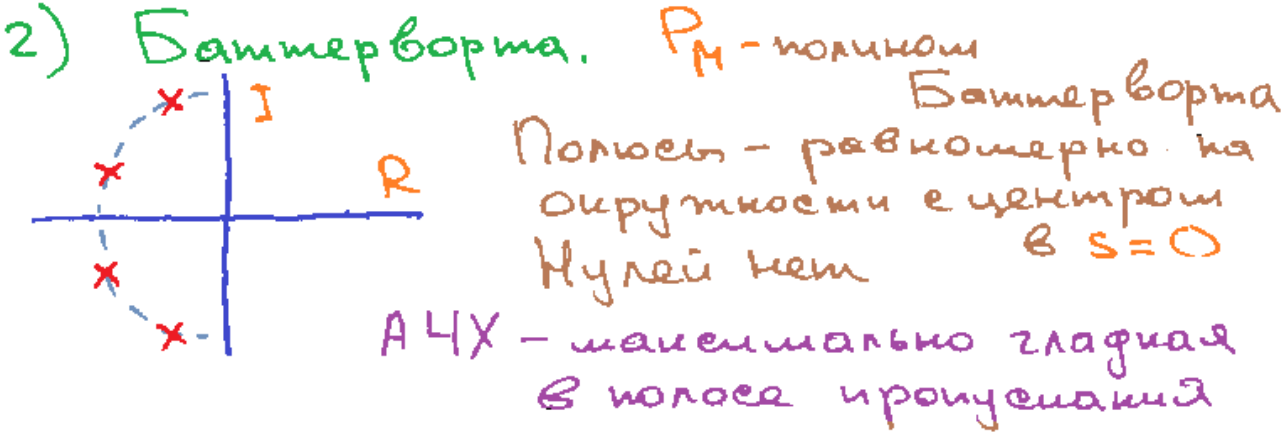 2) Баттерворта. Pм - полином
Баттерворта
I
Полюсы - равномерно на
R
окружности с центром
в s = 0
Нулей нет
АЧХ - максимально гладкая
в полосе пропускания